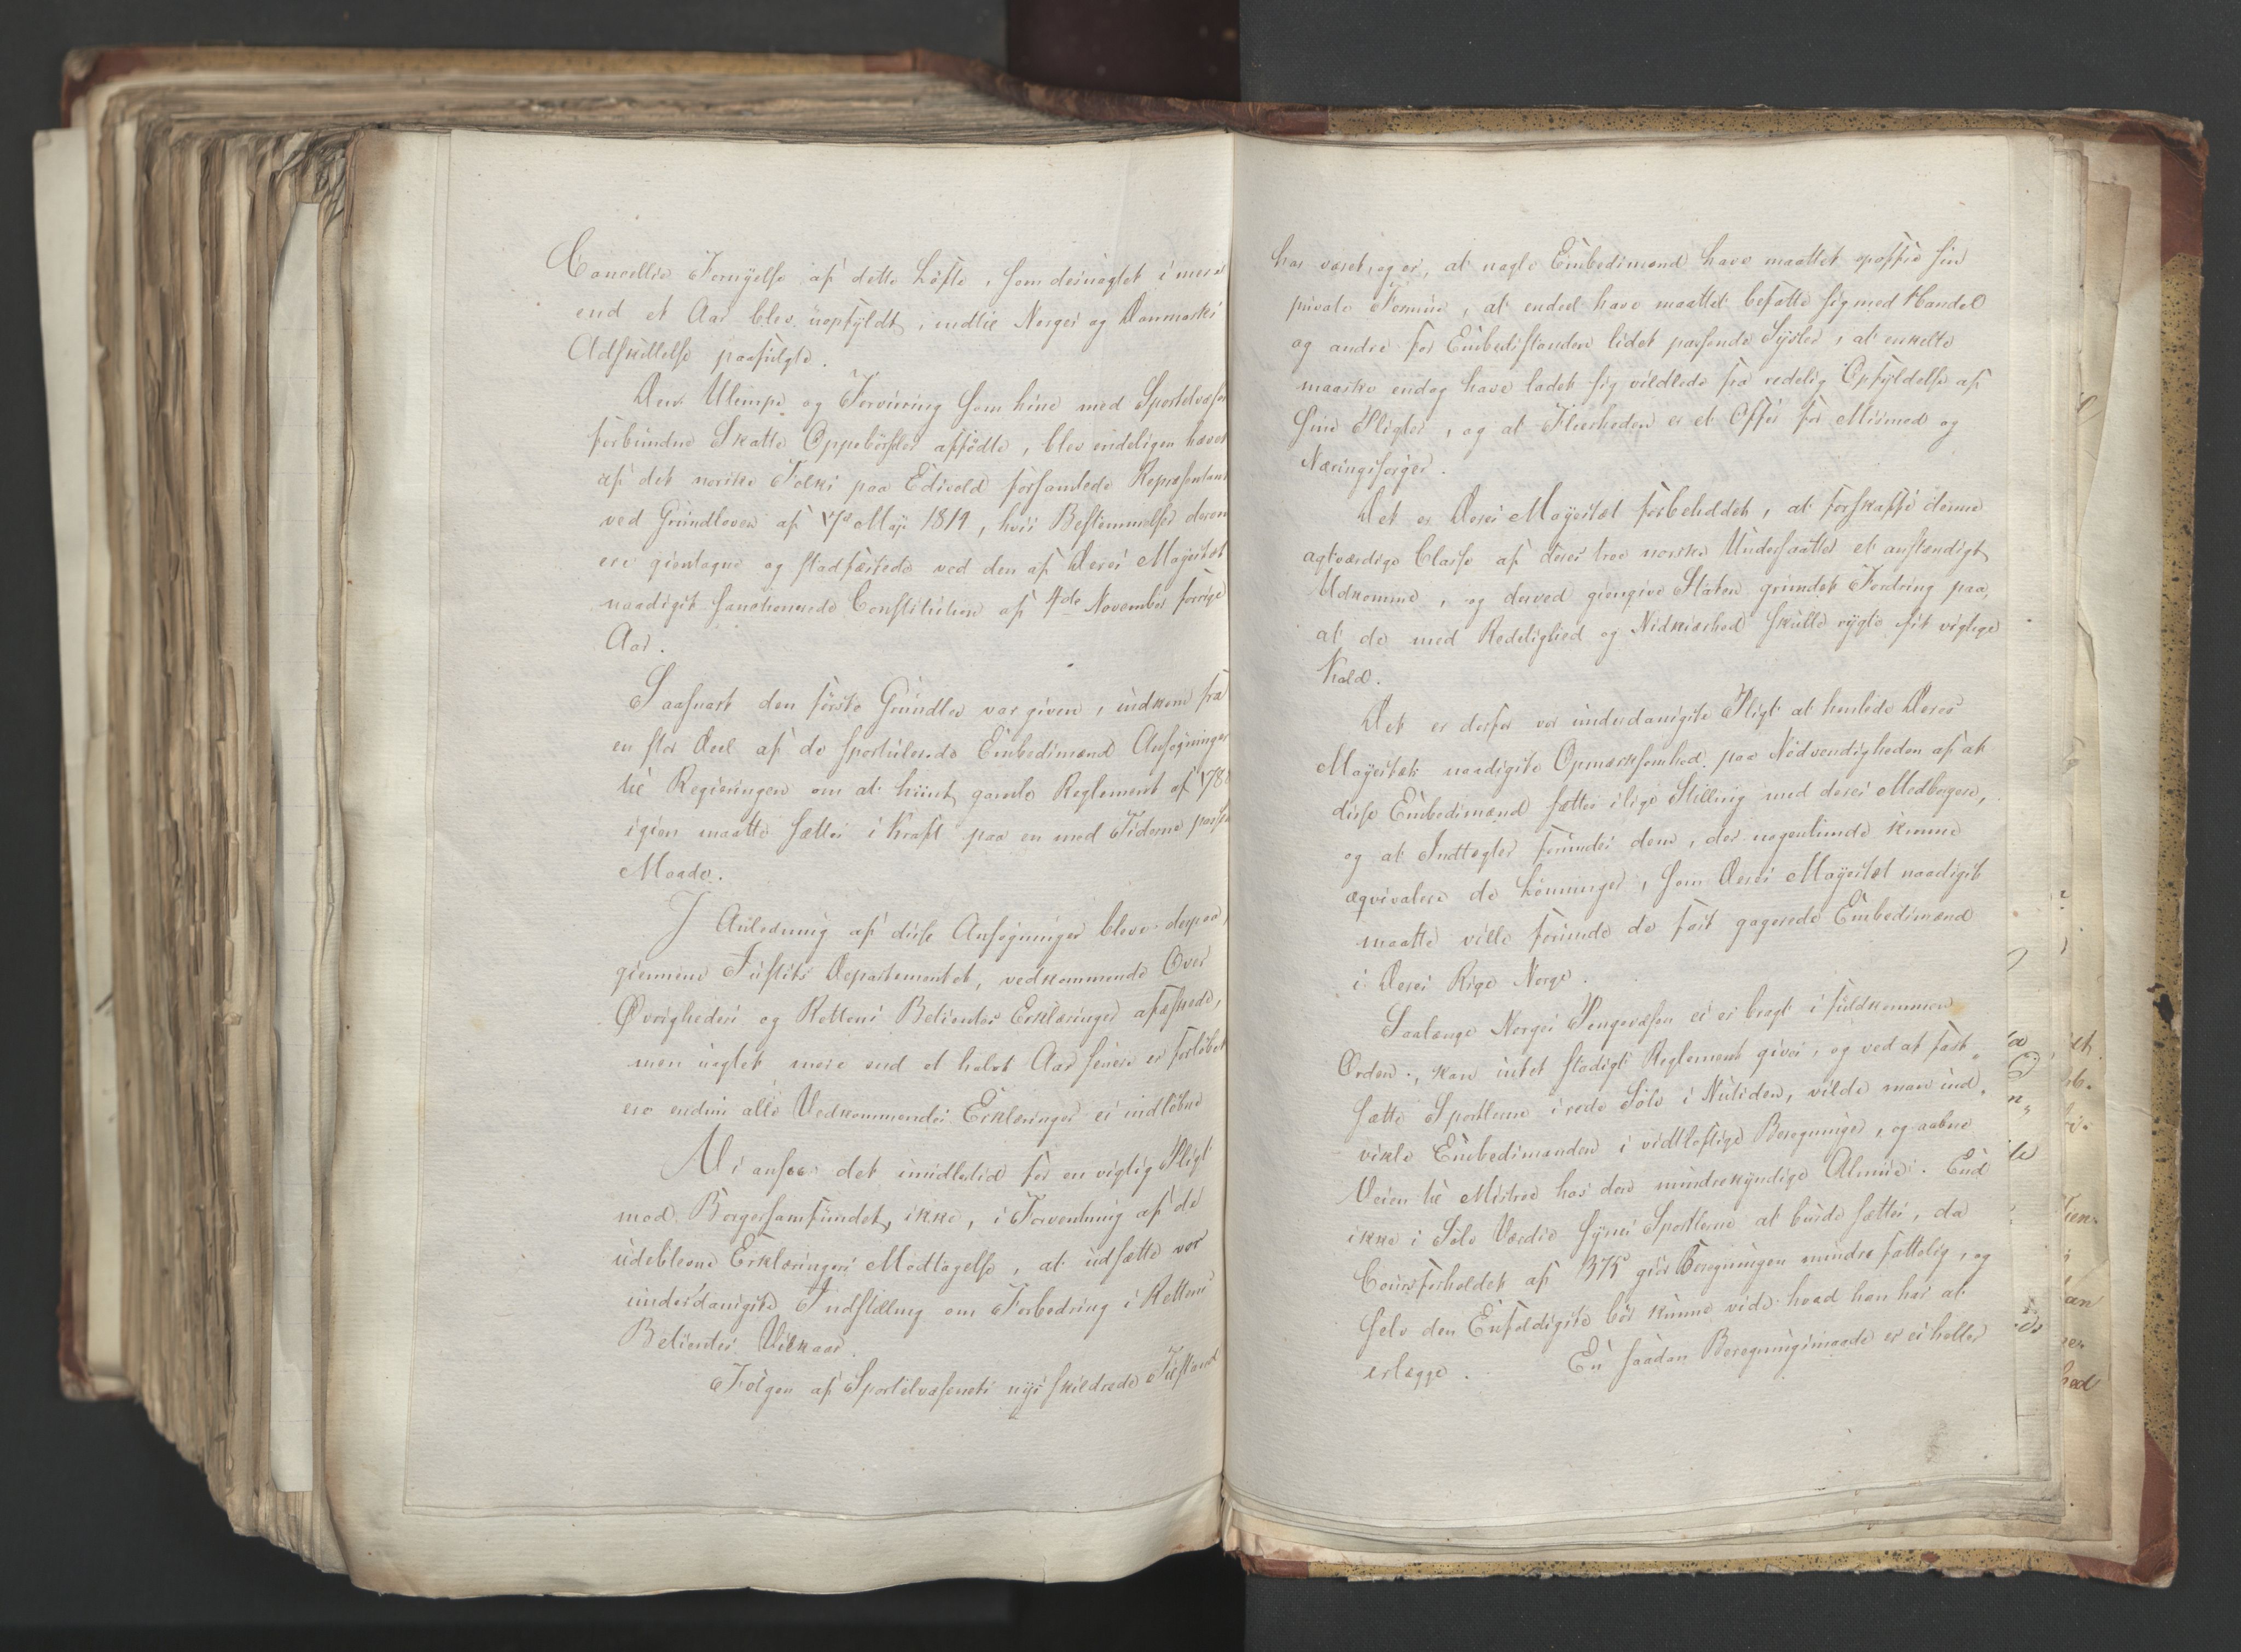 Cancellie Fornyelse af dette Löfte, som desuagtet i mere
end et Aar blev uopfyldt, indtil Norges og Danmarks
Adskillelse paafulgte.
Den Ulempe og Forvirring som hine med Sportelvæsen
forbundne Skatte Oppebörsler affödte, blev endeligen hævet
af det norske Folks paa Edsvold forsamlede Repræsentan
ved Grundloven af 17de May 1814, hvis Bestemmelser derom
ere gientagne og stadfæstede ved den af Deres Mayestæt
naadigst sanctionerede Constitution af 4de November forrige
Aar.
Saasnart den förste Grundlov var given, indkom fra
en stor Deel af de sportulerende Embedsmænd Ansøgninger
til Regieringen om at hiint gamle Reglement af 178
igien maatte sættes i Kraft paa en med Tiderne passe
Maade.
I Anledning af disse Ansøgninger bleve derpaa,
giennem Justits Departementet, vedkommende Over
Øvrigheders og Rettens Betientes Erklæringer afæskede,
men uagtet mere end et halvt Aar senere er forlöbet
ere endnu alle Vedkommendes Erklæringer ei indlöbne
Vi ansee det imidlertid for en vigtig Pligt
mod Borgersamfundet, ikke, i Forventning af de
udeblevne Erklæringers Modtagelse, at udsætte vor
underdanigste Indstilling om Forbedring i Rettens
Betientes Vilkaar.
Følgen af Sportelvæsenets nys skildrede Tilstand
har været, og er, at nogle Embedsmænd have maattet opoffre sin
private Formue, at endeel have maattet befatte sig med Handel
og andre for Embedsstanden lidet passende Sysler, at enkelte
maaske endog have ladet sig vildlede fra redelig Opfyldelse af
sine Pligter, og at Fleerheden er et Offer for Mismod og
Næringssorger.
Det er Deres Mayestæt forbeholdet, at forskaffe denne
agtværdige Classe af deres troe norske Undersaatter et anstændigt
Udkomme, og derved giengive Staten grundet Fordring paa,
at de med Redelighed og Nidkierhed skulle rygte sit vigtige
Kald.
Det er derfor vor underdanigste Pligt at henlede Deres
Mayestæts naadigste Opmærksomhed paa Nödvendigheden af at
disse Embedsmænd sættes i lige Stilling med deres Medborgere,
og at Indtægter forundes dem, der nogenlunde kunne
æqvivalere de Lönninger, som Deres Mayestæt naadigst
maatte ville forunde de fast gagerede Embedsmænd
i Deres Rige Norge.
Saalænge Norges Pengevæsen ei er bragt i fuldkommen
Orden, kan intet stadigt Reglement gives, og ved at fast„
sætte Sportlerne i rede Sölv i Nutiden, vilde man ind„
vikle Embedsmanden i vidtløftige Beregninger, og aabne
Veien til Mistroe hos den mindrekyndige Almue. End
ikke i Sölv Værdie synes Sportlerne at burde sættes, da
Coursforholdet af 375 giör Beregningen mindre fattelig, og
selv den Eenfoldigste bör kunne vide hvad han har at
erlægge. En saadan Beregningsmaade er ei heller